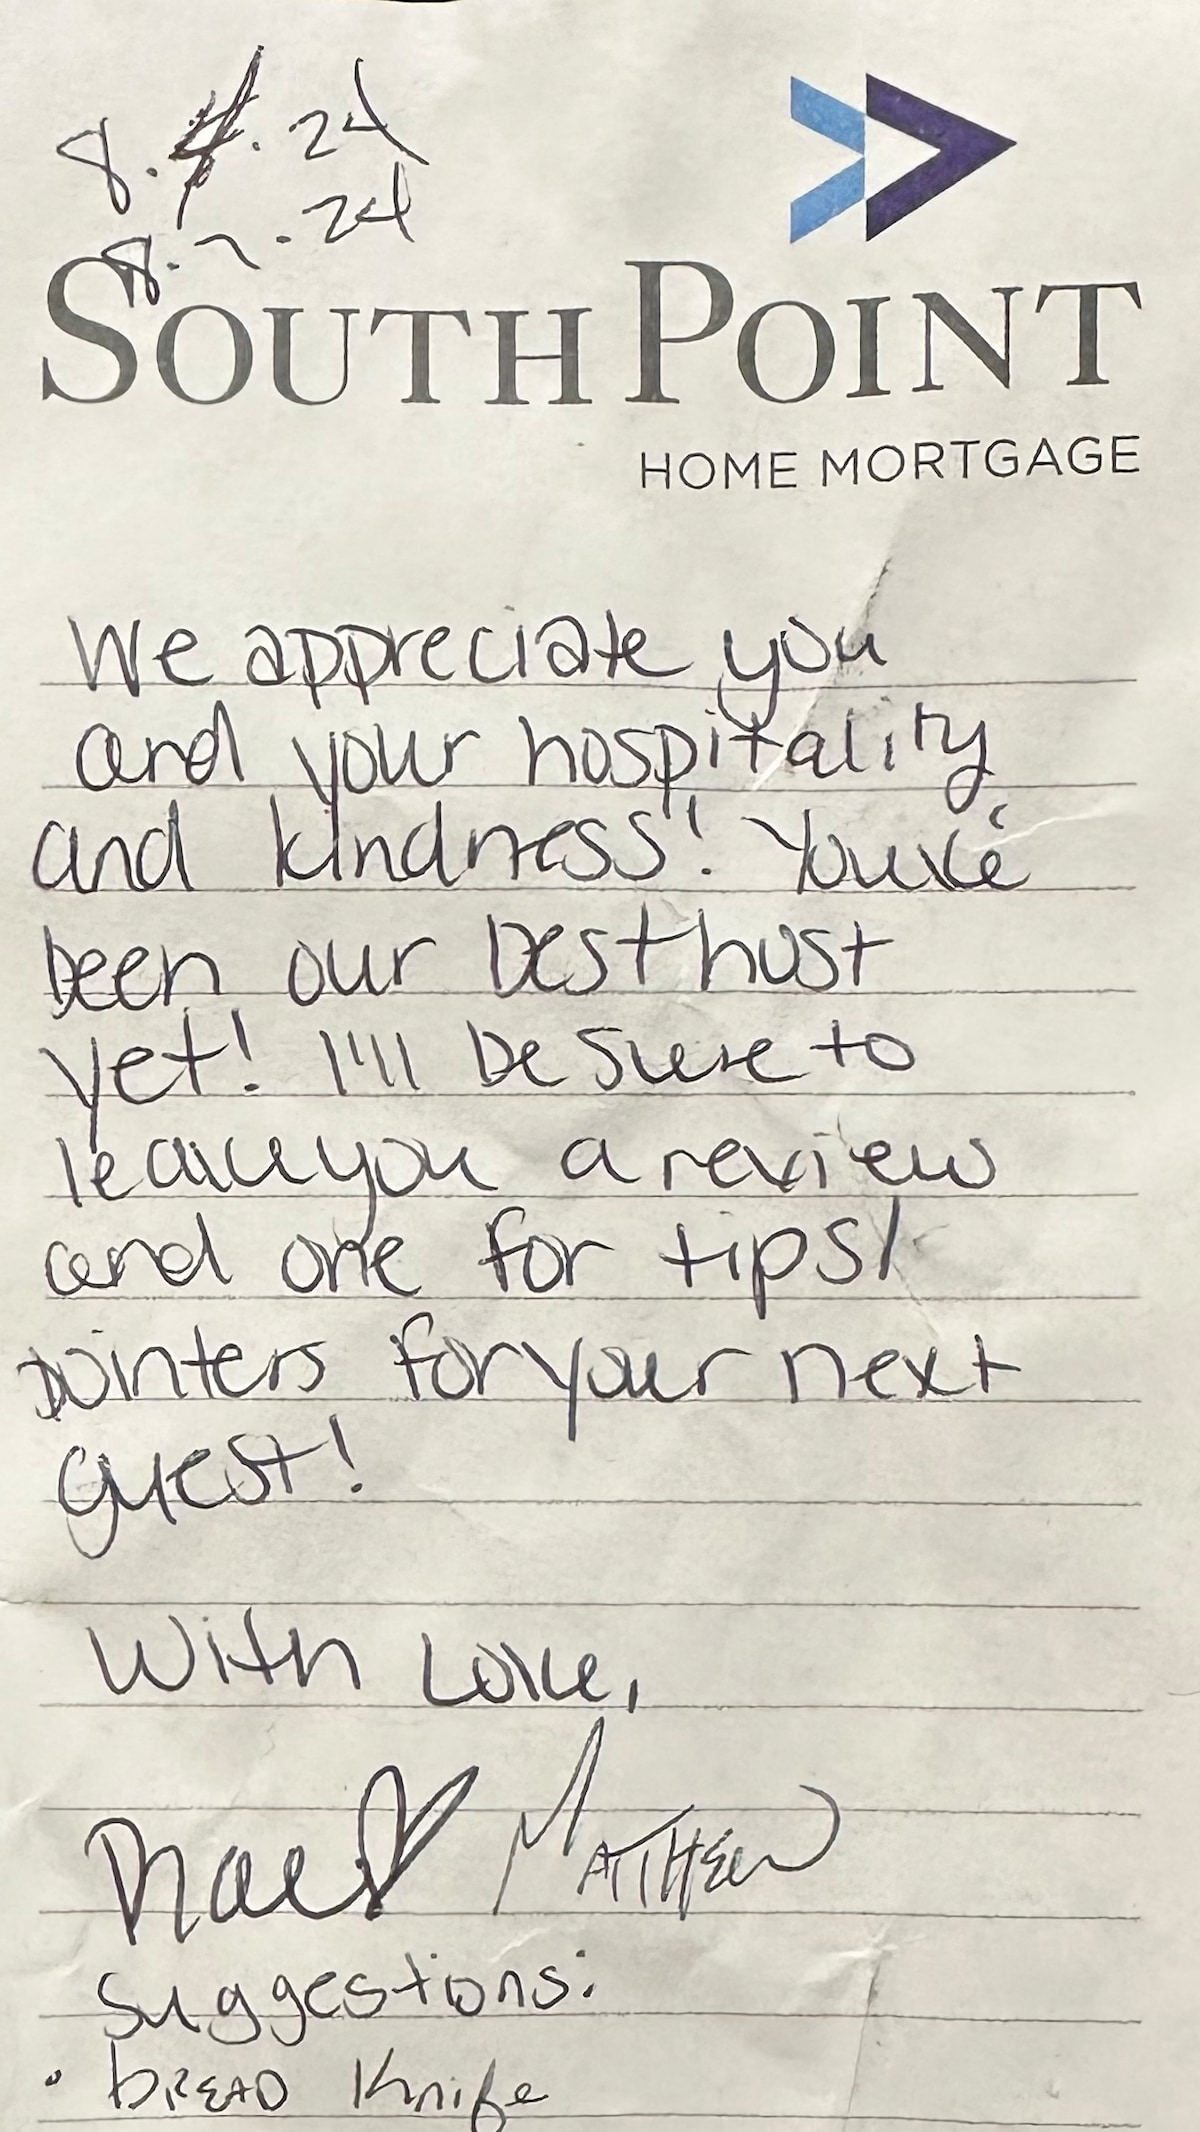 8. 4. 24
8. 7. 24
SOUTHPOINT
HOME MORTGAGE
We appreciate you
and your hospitality
and kindness! You've
been our best host
yet! I'll be sure to
leave you a review
and one for tips/
pointers for your next
guest!
With Love,
Rae MATTHEW
Suggestions:
• bREAD Knife